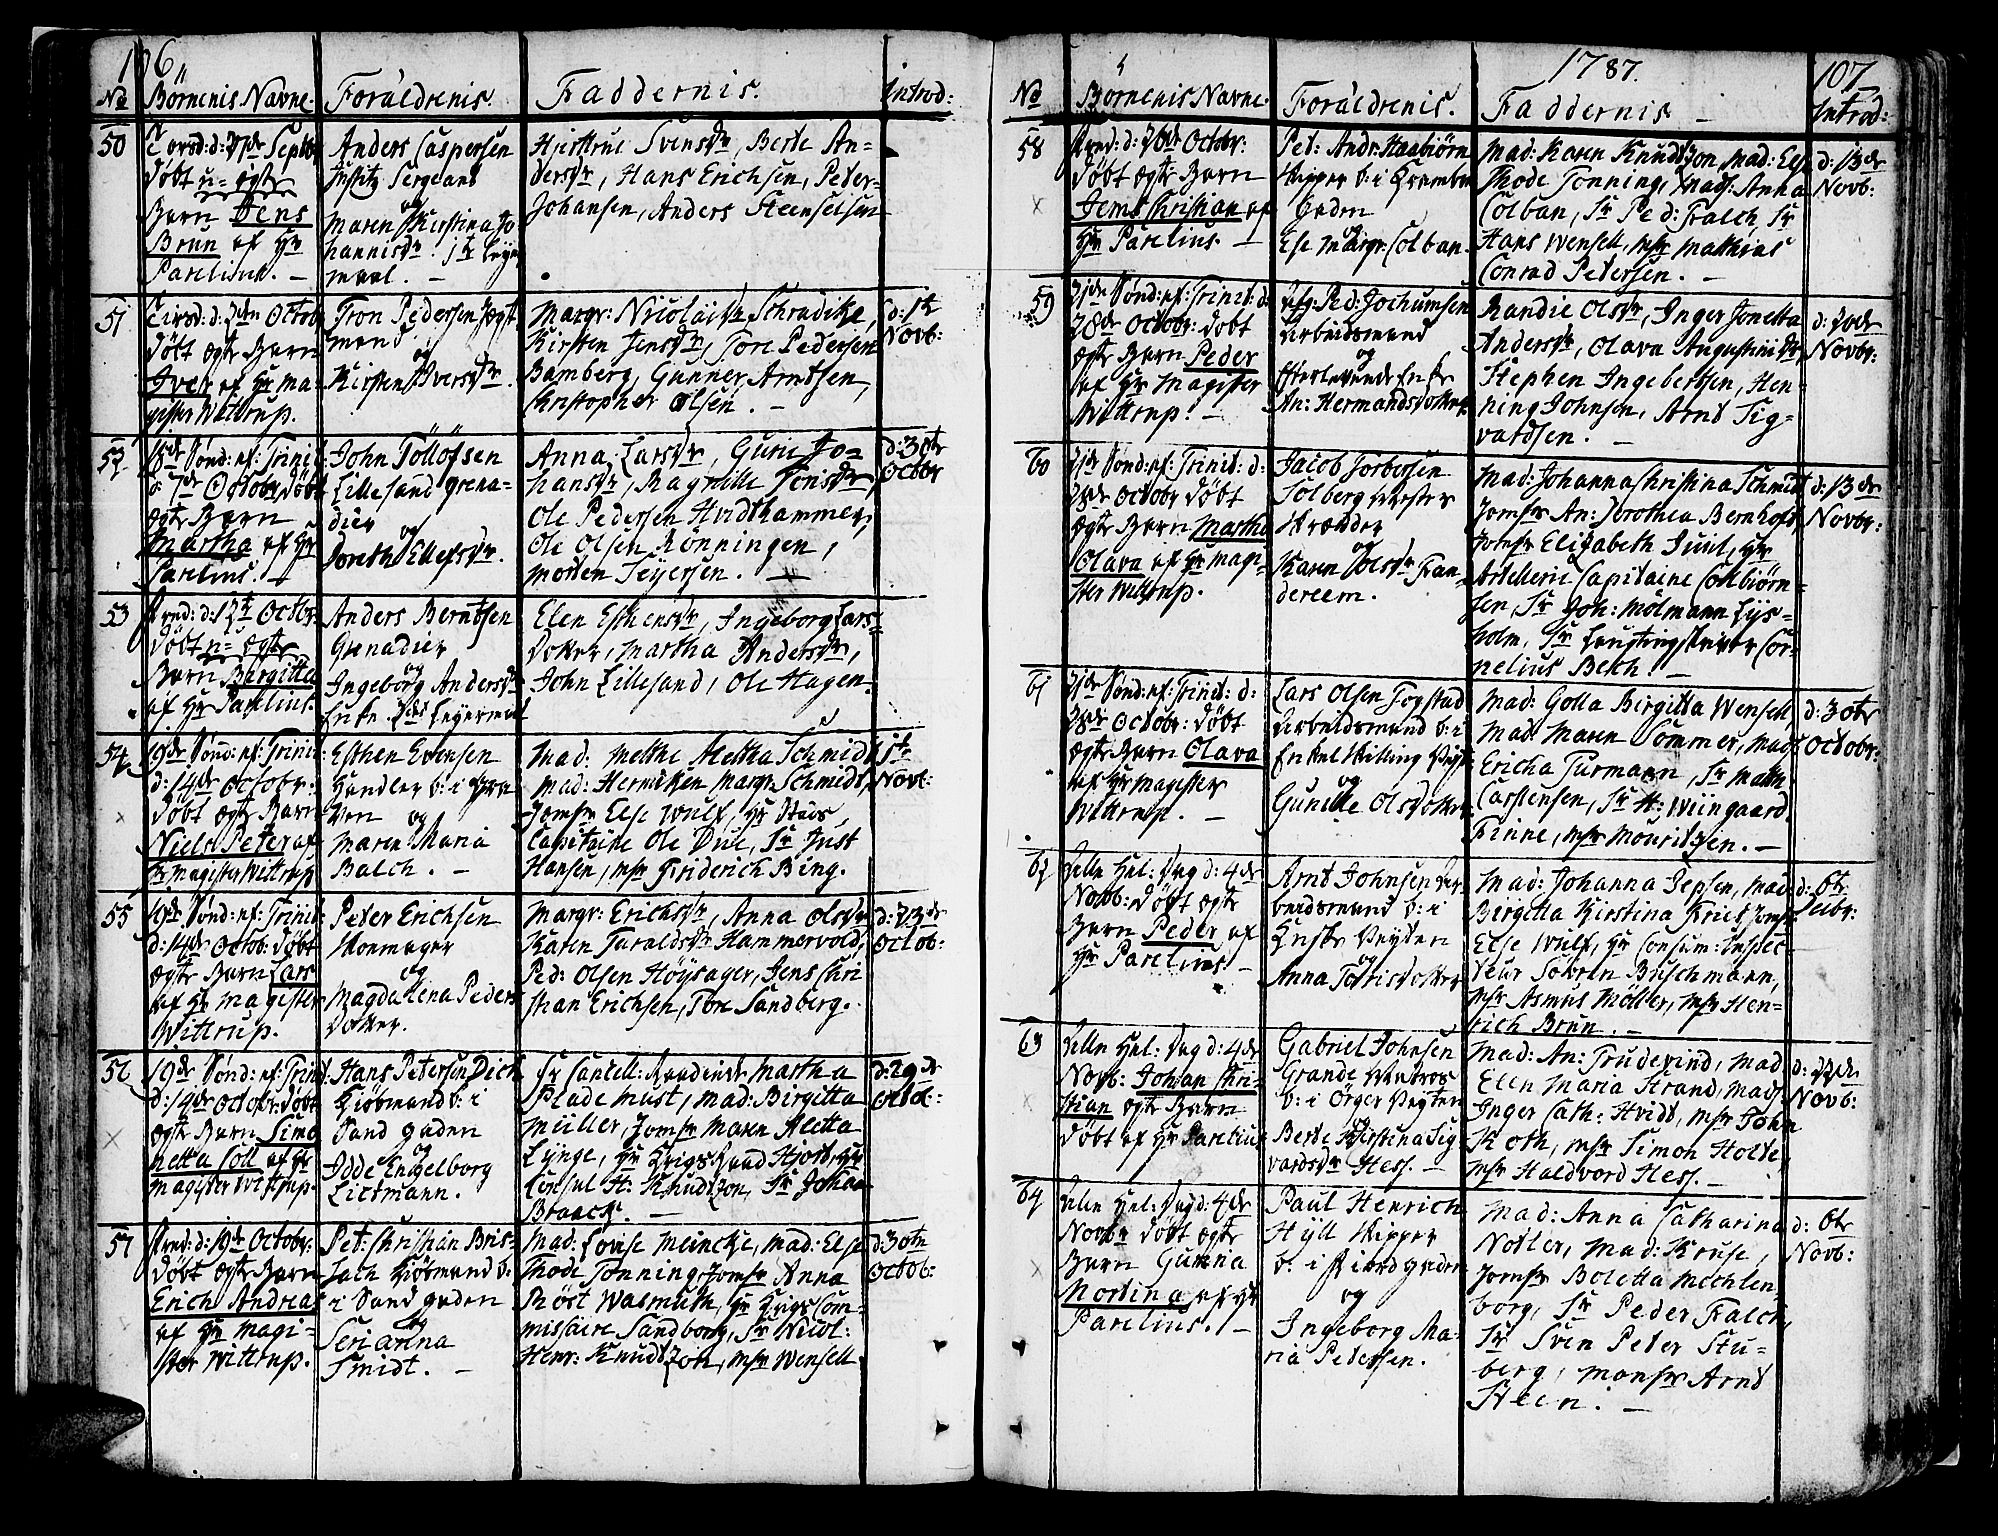 106
No Börnenis Navne. Forældrenis. Faddernis. Introd:
50
Tirsd: d: 27de Septbr
döbt u-ægte
Barn Jens
Brun af Hr
Parelius. –
Anders Caspersen
Sergeant
og
Maren Kirstina Jo
hannisdr. 1ste Leyer
maal. –
Svensdr, Berte An-
dersdr, Hans Erichsen, Peter
Johansen, Anders Steenselsen
51
Tirsd: d: 2den Octob
döbt ægte Barn
Iver af Hr Ma-
gister Wittrup.
Tron Pedersen
mand
og
Kirsten Iversdr.
Margr: Nicolai Schradike,
Kirsten Jensdr, Tore Pedersen
Bamberg, Gunner Arntsen,
Christopher Olsen. –
d: 1te
Novb:
52
18de Sönd: ef: Trinit:
d: 7de Octobr döbt
ægte Barn
Martha af Hr
Parelius. –
John Töllöfsen
Lillesand Grena-
dier
og
Doreth Ellefsdr.
Anna Larsdr, Guru Jo-
hansdr, Ragnille Jonsdr,
Ole Pedersen Hvidthammer,
Ole Olsen Rönningen,
Morten Seyersen. –
d: 30te
Octobr
53
d: 12te Octobr:
döbt u-ægte
Barn Birgitta
af Hr Parelius.
Anders Berntsen
Grenadier
og
Ingeborg Andersdr
Enke. 2det Leyermaal
Elen Esthensdr, Ingeborg Lars-
Datter, Martha Andersdr,
John Lillesand, Ole Hagen.
54
19de Sönd: ef: Trinit:
d: 14de Octobr:
döbt ægte Barn
Niels Peter af
Hr Magister Wittrup
Esthen Evensen
Handler b: i
og
Maren Maria
Balch. –
Mad: Mette Aletha Schmidt
Mad: Hernicken Margr: Schmedt,
Jomfr Else Wulf, Hr Stads
Capitaine Ole Due, Sr Just
Hansen, Msr Friderich Bing.
15te
Novb:
55
19de Sönd: ef: Trinit:
d: 14de Octob: döbt
ægte Barn Lars
af Hr Magister
Wittrup.
Peter Erichsen
Skomager
og
Magdalena Peders
Datter.
Margr: Erichsdr, Anna Olsdr
Karen Taraldsdr Hammervold,
Ped: Olsen Höysager, Jens Chri
stian Erichsen, Tore Sandberg.
d: 23de
Octob:
56
19de Sönd: ef: Trinit.
d: 14de Octobr: döbt
ægte Barn Simo
netta Coll af Hr
Magister Wittrup.
Hans Petersen Dich
Kiöbmand b: i
Sand gaden
og
Idde Engelborg
Lietmann.
Fr Cancell: Raadinde Martha
Plade Must, Mad: Birgitta
Müller, Jomfr Maren Aletta
Lynge, Hr Krigs Raad Hjort, Hr
Consul H: Knudtzon, Sr Johan
Braack. –
d: 29de
Octob:
57
d: 19de Octobr:
döbt ægte Barn
Erich Andreas
af Hr Magi-
ster Wittrup.
Pet: Christian Bris-
sach Kiöbmand b:
i Sand gaden
og
Serianna
Smidt. –
Mad: Lovise Meincke, Mad: Else
Thode Tonning, Jomfr Anna
Röst Wasmuth, Hr Krigs Com-
missaire Sandborg, Sr Nicol:
Henr: Knudtzon, Msr Wensell
d: 30te
Octob:
1787. 107
No Börnenis Navne. Forældrenis. Faddernis – Introd:
58
d: 26de Octobr:
döbt ægte Barn
Jens Christian af
Hr Parelius. –
Pet: Andr: Haabiörn
Skipper b: i
Gaden
og
Else Margr: Colban.
Mad: Karen Knudtzon, Mad: Else
Thode Tonning, Mad: Anna
Colban, Sr Ped: Falch, Sr
Hans Wensell, Msr Mathias
Conrad Petersen. –
d: 13de
Novb:
59
21de Sönd: ef: Trinit: d:
28de Octobr: döbt
ægte Barn Peder
af Hr Magister
Wittrup. –
Afg: Ped: Jochumsen
Arbeidsmand
og
Efterlevende Enke
An: Hermandsdatter
Randie Olsdr, Inger Jonetta
Andersdr, Olava Augustinisdr,
Stephen Ingebertsen, Hen-
ning Johnsen, Arnt Sig-
vardsen. –
d: 20de
Novbr:
60
21de Sönd: ef: Trinit: d:
28de Octobr döbt
ægte Barn Martha
Olava af Hr Magi-
ster Wittrup.
Jacob Torbersen
Solberg Mester
Skrædder
og
Karen Olsdr Fan-
dereem.
Mad: Johanna Christina Schmidt
Jomfr An: Dorothea Bernhoft
Jomfr Elizabeth Juul, Hr
Artellerie Capitaine Colbiörn-
sen, Sr Joh: Mölmann Lys-
holm, Sr Cor-
nelius Beck. –
d: 13de
Novbr:
61
21de Sönd: ef: Trinit: d:
28de Octobr: döbt
ægte Barn Olava
af Hr Magister
Wittrup. –
Lars Olsen Fogstad
Arbeidsmand b: i
Enkel Killing Veyt
og
Gunille Olsdatter
Mad: Golla Birgitta Wensell
Mad: Maren Sommer, Mad:
Ericha Turmann, Sr Math:
Carstensen, Sr H: Wiingaard
Finne, Msr Mouritzen. –
d: 30te
Octobr:
62
Alle Hel: Dag d: 4de
Novb: döbt ægte
Barn Peder af
Hr Parelius –
Arnt Johnsen Ar-
beidsmand b: i
Veyten
og
Anna Torrisdatter
Mad: Johanna Jepsen, Mad:
Birgitta Kirstina Kriet, Jomfr
Else Wulf, Hr Consum: Inspec-
teur Sövren Buschmann,
Msr Asmus Möller, Msr Hen-
rich Brun. –
d: 6te
63
Alle Hel: Dag d: 4de
Novb: Johan Chri-
stian ægte Barn
döbt af Hr Parelius
Gabriel Johnsen
Grande Matros
b: i Örger Veyten
og
Berte Kirstina Sig
vardsdr Hess. –
Mad: An: Trudevind, Mad:
Elen Maria Strand, Mad:
Inger Cath: Hvidt, Msr John
Koth, Msr Simon Holte,
Msr Haldvord Hess. –
d: 22de
Novb:
64
Alle Hel: Dag d: 4de
Novbr döbt ægte
Barn Gunnia
Mortina af Hr
Parelius. –
Paul Henrich
Hyll Skipper
b: i Fiordgaden
og
Ingeborg Ma-
ria Petersen.
Mad: Anna Catharina
Notler, Mad: Kruse,
Jomfr Boletta Mechlen
borg, Sr Peder Falch,
Sr Sven Peter Stu-
berg, Monsr Arnt
Steen. –
d: 6te
Novb: